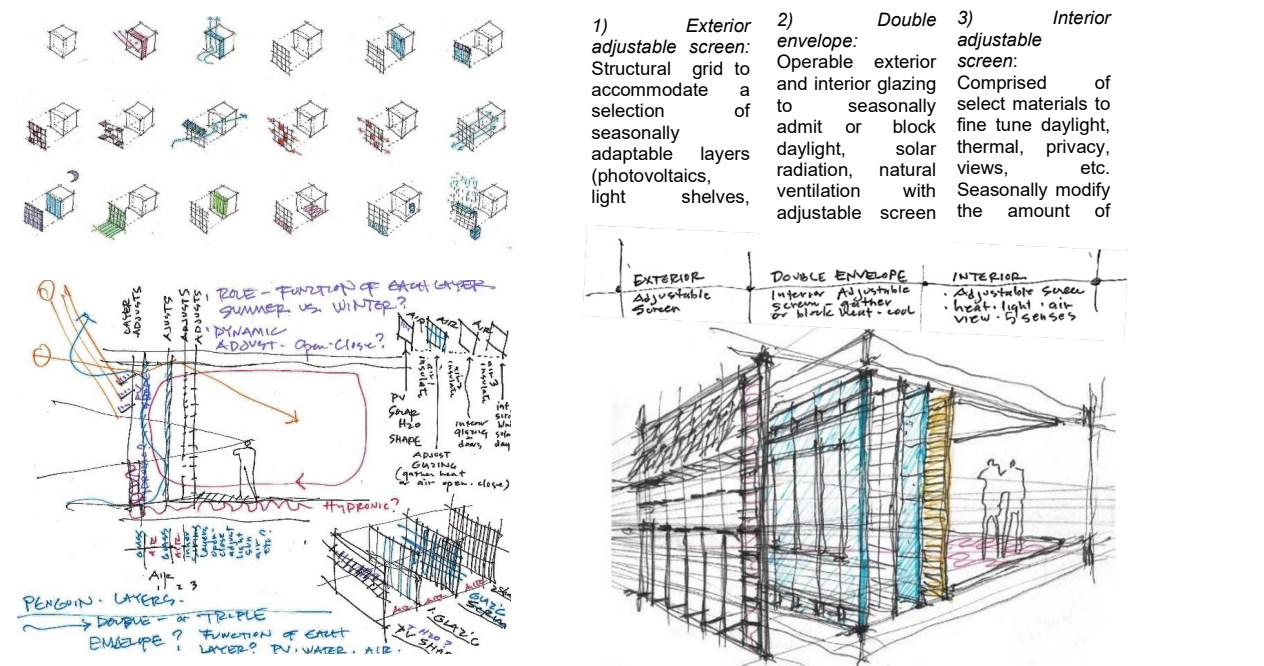 1) Exterior
adjustable screen:
Structural grid to
accommodate a
selection of
seasonally
adaptable layers
(photovoltaics,
light shelves,
2) Double
envelope:
Operable exterior
and interior glazing
to seasonally
admit or block
daylight, solar
radiation, natural
ventilation with
adjustable screen
3) Interior
adjustable
screen:
Comprised of
select materials to
fine tune daylight,
thermal, privacy,
views, etc.
Seasonally modify
the amount of
EXTERIOR
Adjustable
Screen
DOUBLE ENVELOPE
Interior Adjustable
screen - gather
or block heat - cool
INTERIOR
• Adjustable Screen
• heat · light · air
view · 5 senses
LAYER
ADJUSTS
AJUSTS
ADJUSTS
ADJUSTS
ROLE - FUNCTION OF EACH LAYER
SUMMER VS. WINTER?
DYNAMIC
ADJUST - Open-Close?
AIR
AIR
AIR
PV
SOLAR
H2O
SHAPE
air 3
insulate
interior
glazing
doors
ADJUST
GLAZING
(gather heat
or air open · close)
HYDRONIC?
AIR
2 3
PENGUIN · LAYERS ·
DOUBLE - or TRIPLE
ENVELOPE? FUNCTION OF EACH
LAYER? PV · WATER · AIR ·
1. GLAZ'G
H2O?
GLAZ'G
SCREEN